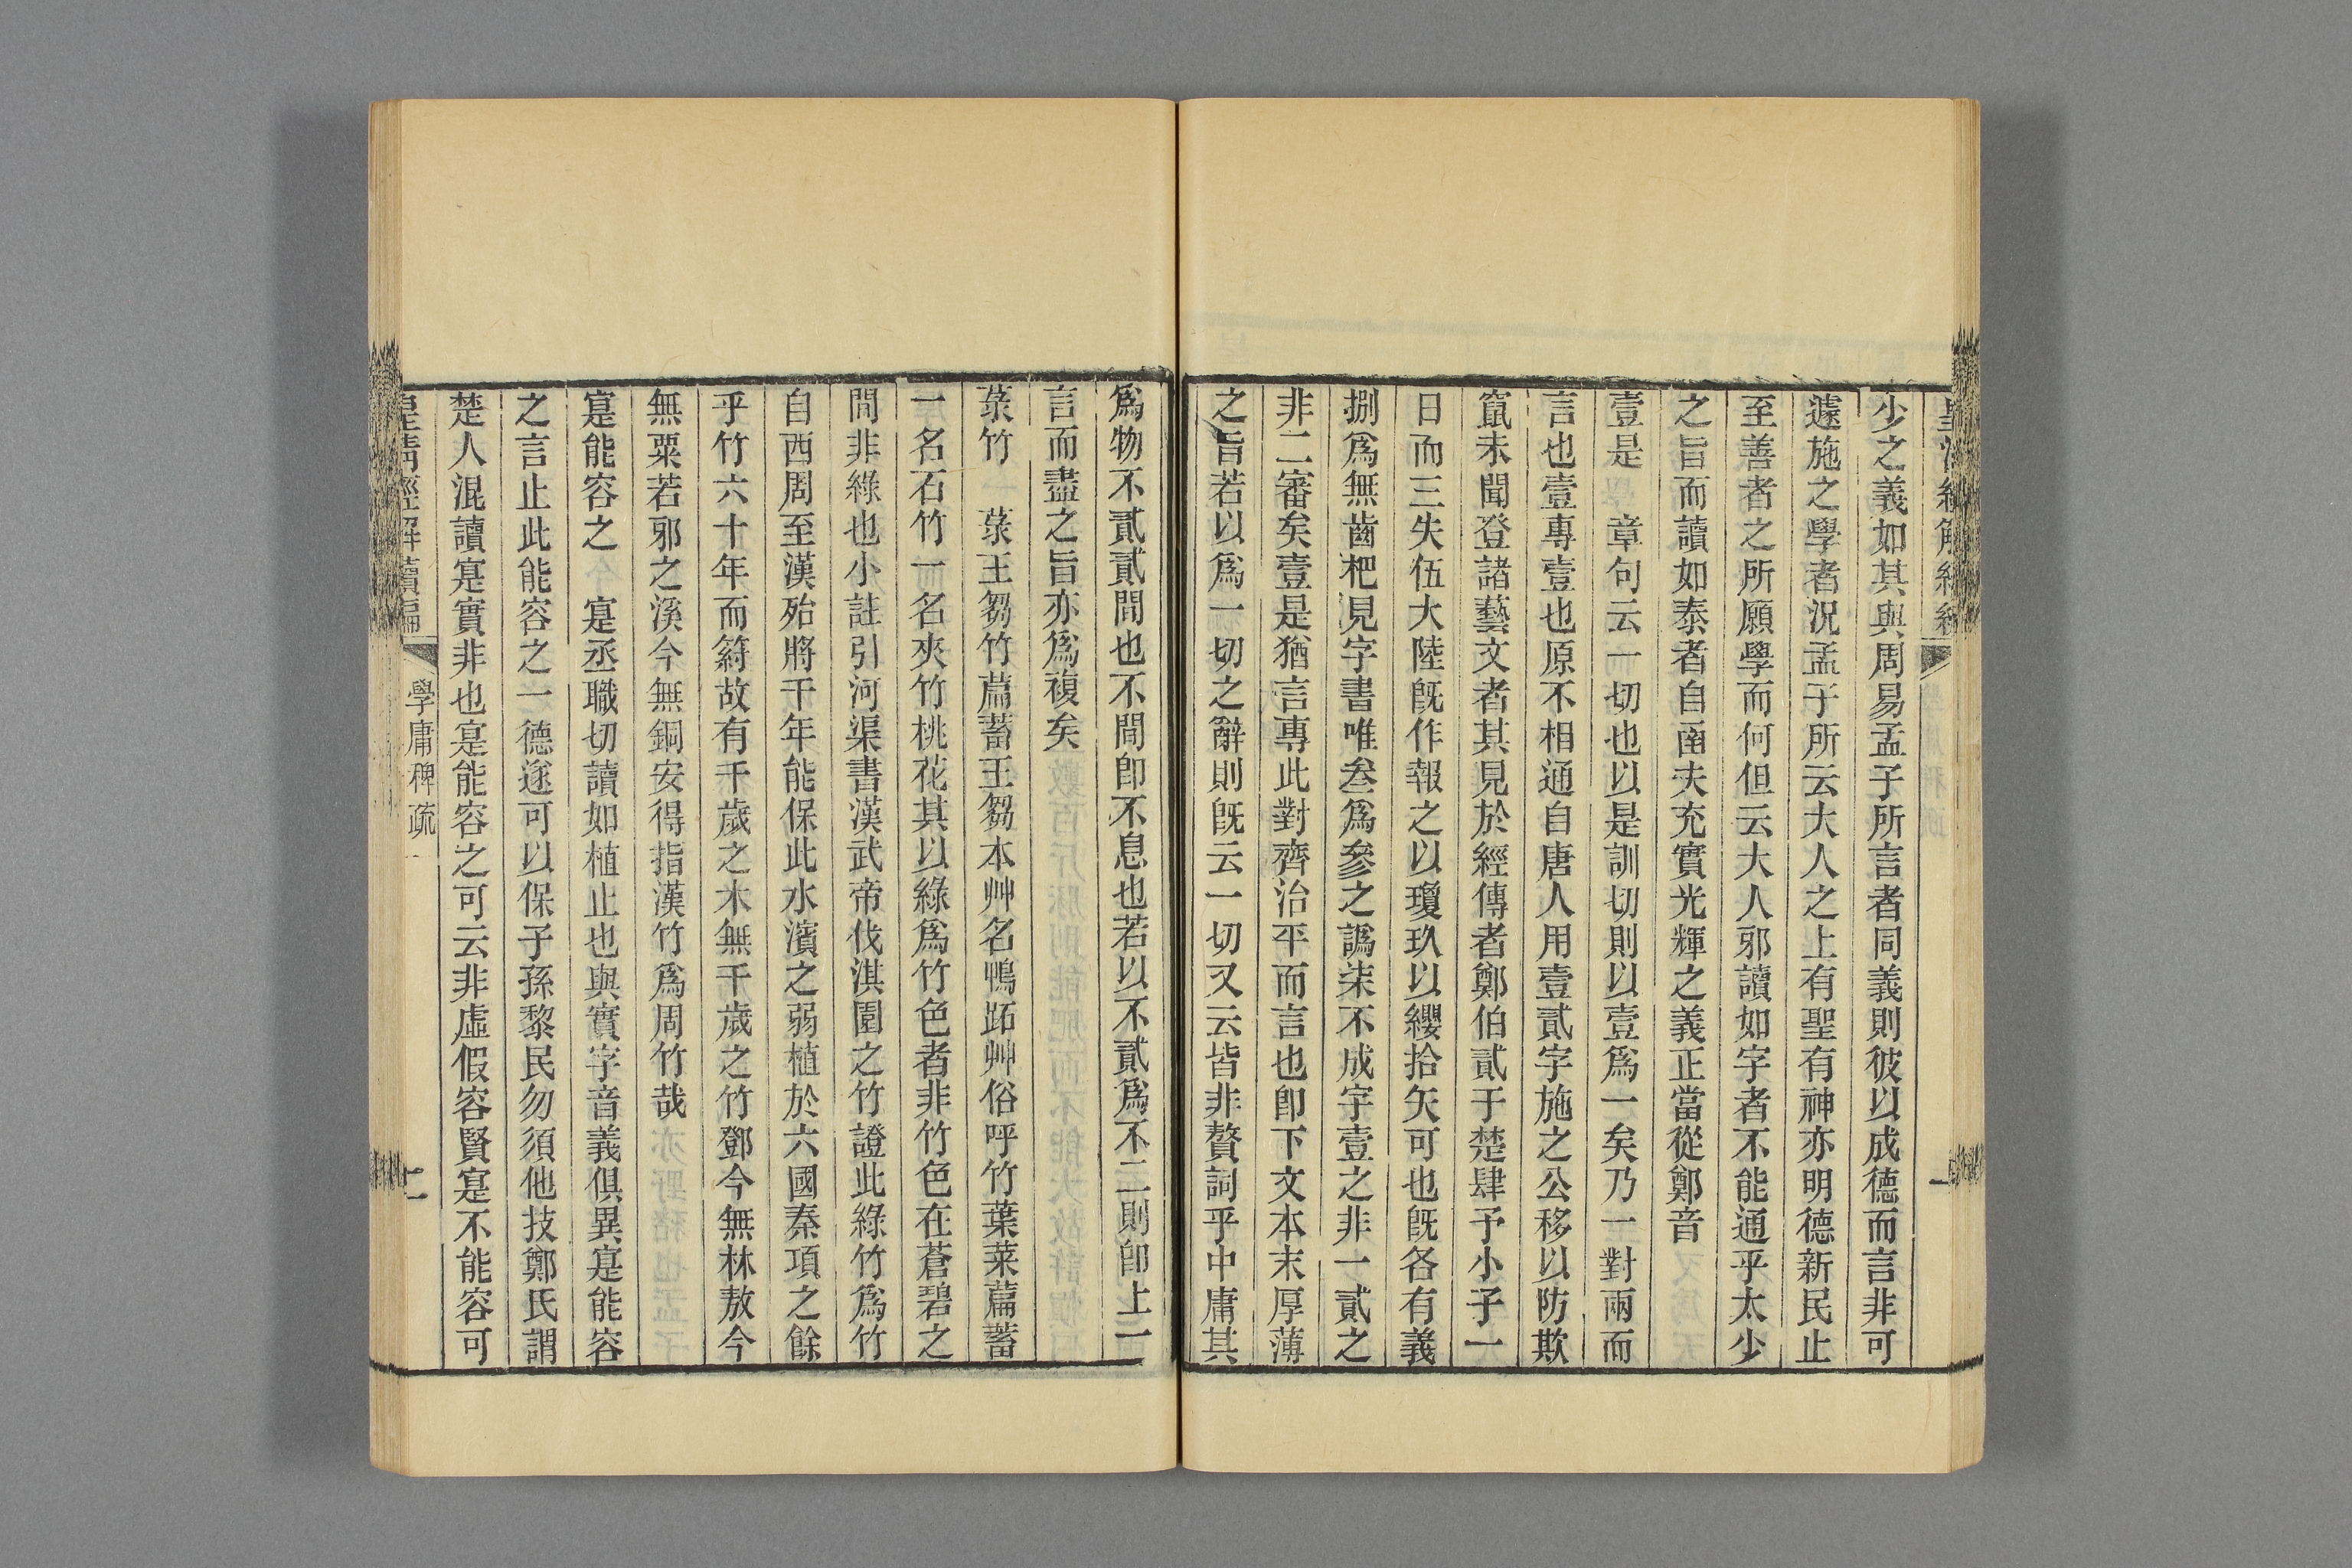 少之義如其與周易孟子所言者同義則彼以成德而言非可
遽施之學者況孟子所云大人之上有聖有神亦明德新民止
至善者之所願學而何但云大人邪讀如字者不能通乎太少
之旨而讀如泰者自函夫充實光輝之義正當從鄭音
壹是　章句云一切也以是訓切則以壹爲一矣乃一對兩而
言也壹專壹也原不相通自唐人用壹貳字施之公移以防欺
竄未聞登諸藝文者其見於經傳者鄭伯貳于楚肆予小子一
日而三失伍大陸旣作報之以瓊玖以纓拾矢可也旣各有義
捌爲無齒杷見字書唯叁爲參之譌柒不成字壹之非一貳之
非二審矣壹是猶言專此對齊治平而言也卽下文本末厚薄
之旨若以爲一切之辭則旣云一切又云皆非贅詞乎中庸其
爲物不貳貳閒也不閒卽不息也若以不貳爲不二則卽上一
言而盡之旨亦爲複矣
菉竹　菉王芻竹萹蓄王芻本艸名鴨跖艸俗呼竹葉菜萹蓄
一名石竹一名夾竹桃花其以綠爲竹色者非竹色在蒼碧之
閒非綠也小註引河渠書漢武帝伐淇園之竹證此綠竹爲竹
自西周至漢殆將千年能保此水濱之弱植於六國秦項之餘
乎竹六十年而䈙故有千歲之木無千歲之竹鄧今無林敖今
無粟若邪之溪今無銅安得指漢竹爲周竹哉
寔能容之　寔丞職切讀如植止也與實字音義俱異寔能容
之言止此能容之一德遂可以保子孫黎民勿須他技鄭氏謂
楚人混讀寔實非也寔能容之可云非虛假容賢寔不能容可
皇淸經解續編
學庸稗疏
二